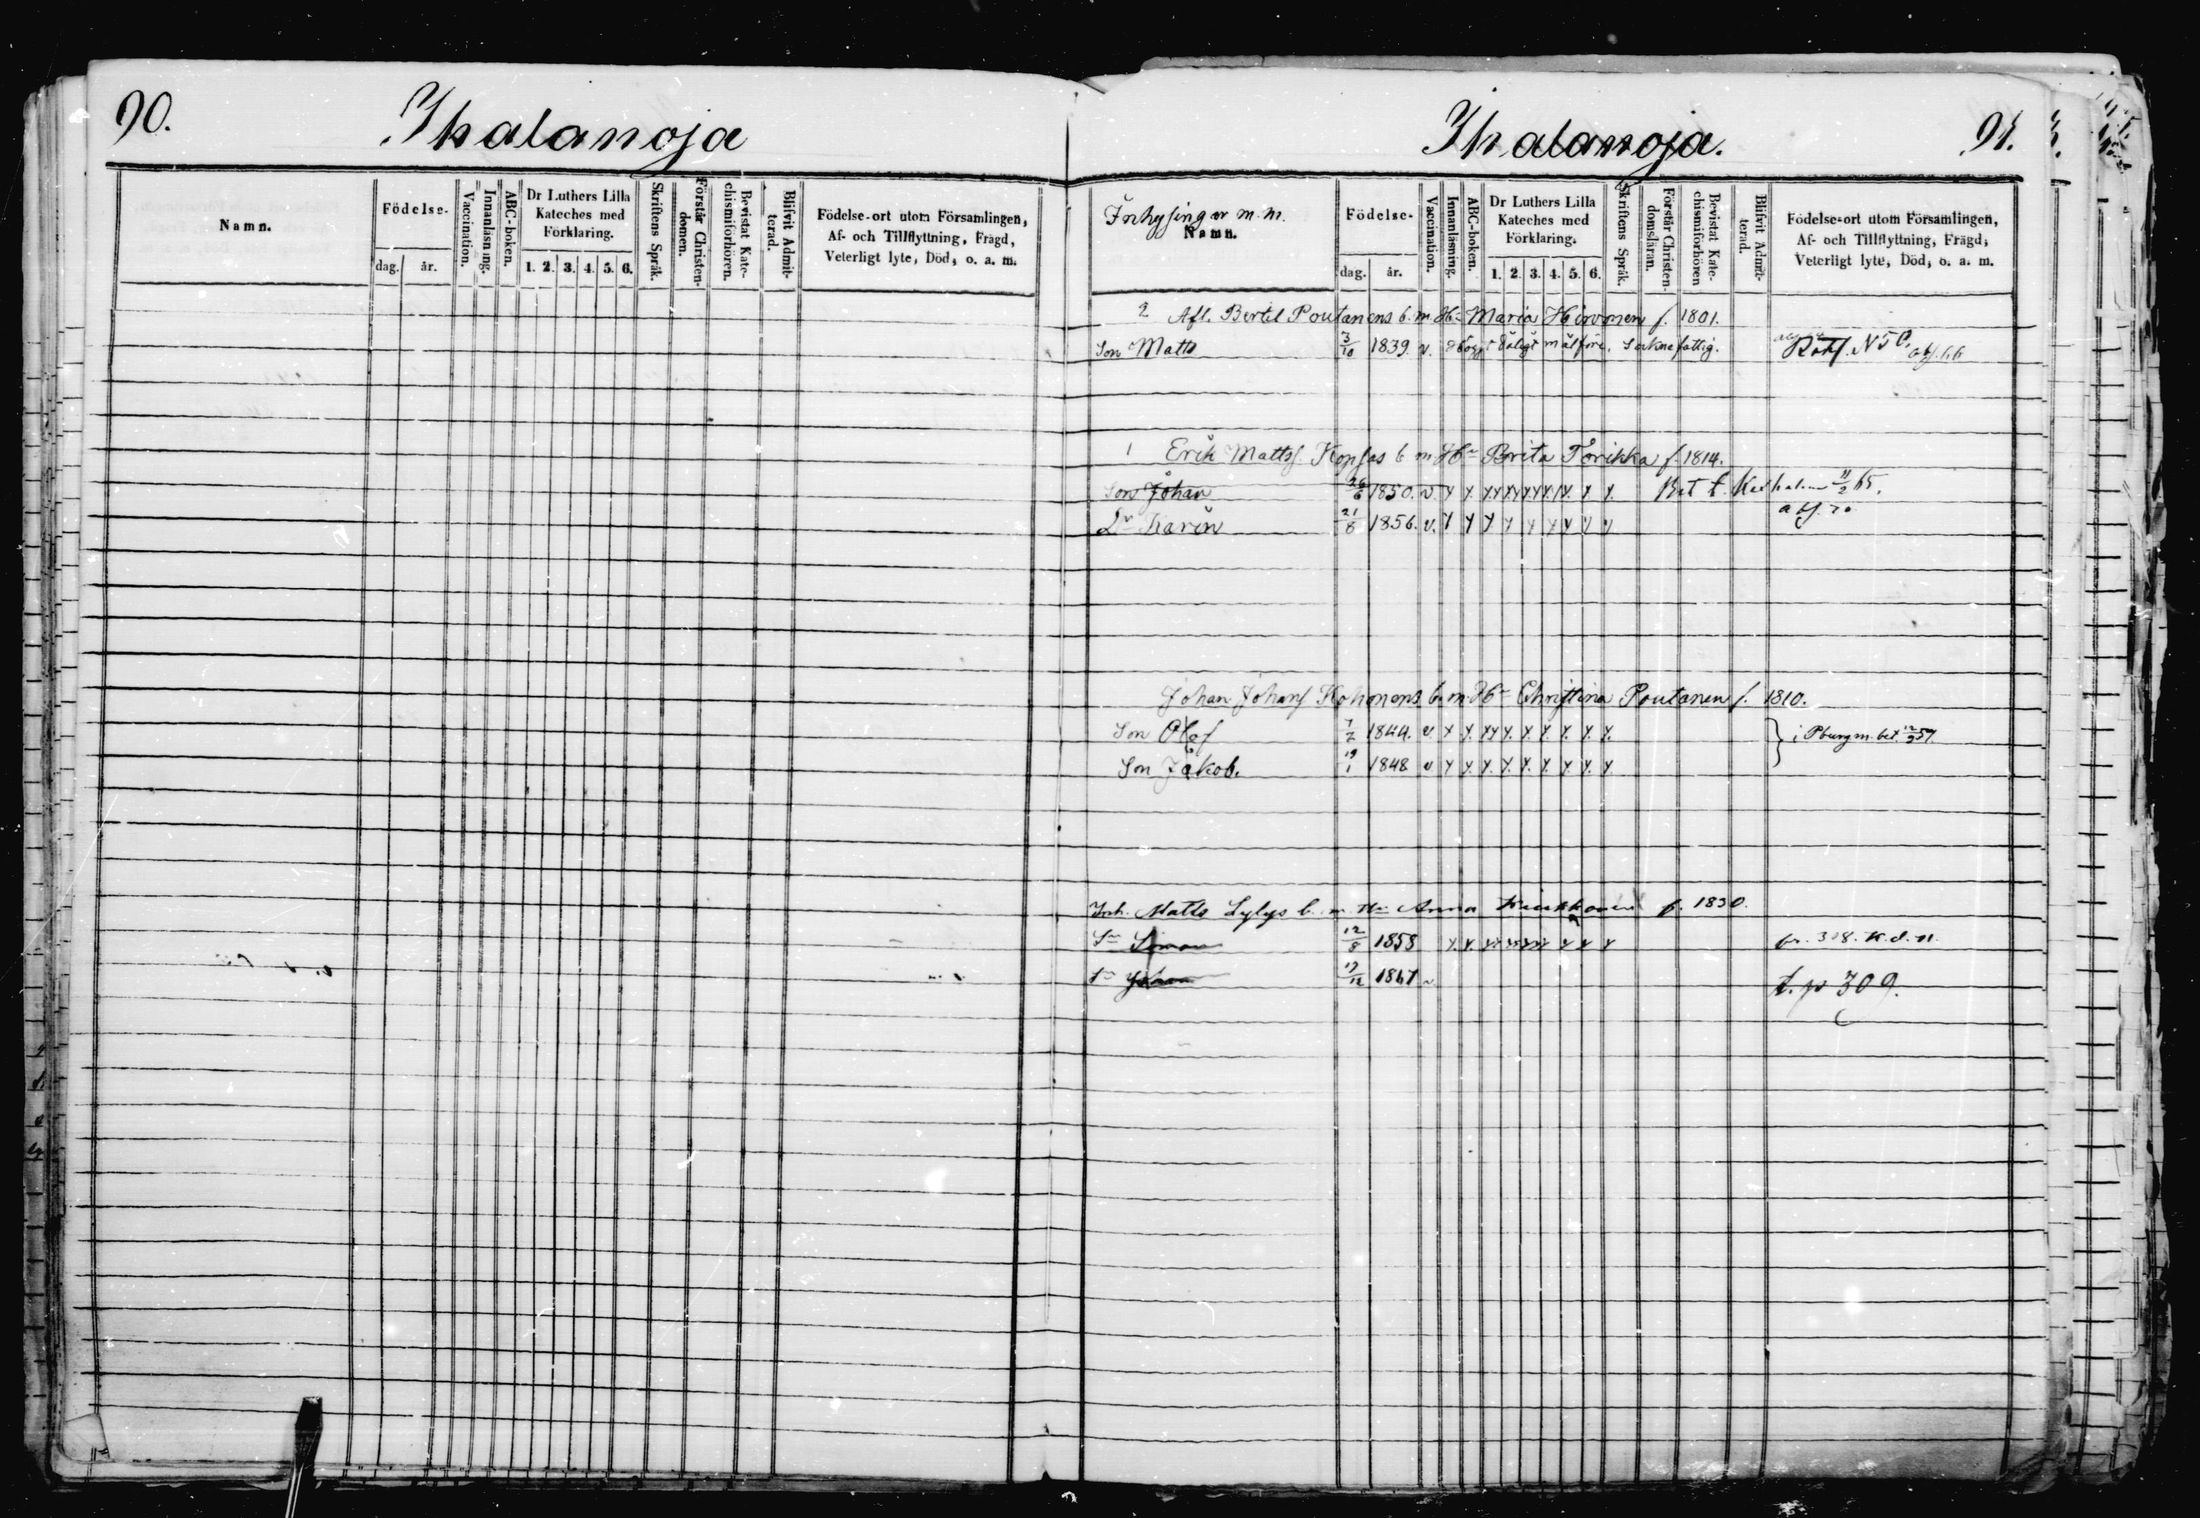 90. Ihalanoja
Namn.
Födelse-
dag. år.
Vaccination.
Innanläsning.
ABC-boken.
Dr Luthers Lilla
Kateches med
Förklaring.
1. 2. 3. 4. 5. 6.
Skriftens Språk.
Förstår Christen-
domen.
Bevistat Kate-
chismiförhören.
Blifvit Admit-
terad.
Födelse-ort utom Församlingen,
Af- och Tillflyttning, Frägd,
Veterligt lyte, Död, o. a. m.
Ihalanoja. 91.
Inhysingar m. m.
Namn.
Födelse-
dag. år.
Vaccination.
Innanläsning.
ABC-boken.
Dr Luthers Lilla
Kateches med
Förklaring.
1. 2. 3. 4. 5. 6.
Skriftens Språk.
Förstår Christen-
domsläran.
Bevistat Kate-
chismiförhören
Blifvit Admit-
terad.
Födelse-ort utom Församlingen,
Af- och Tillflyttning, Frägd,
Veterligt lyte, Död, o. a. m.
2 Afl. Bertil Poutanens b. m. Hu Maria Hirvonen f. 1801.
Son Matts 3/10 1839. v. målföre, Soknefattig. N 50. abs. 66
1 Erik Matts. Kopsas b m Hu Brita Torikka f. 1814.
Son Johan 26/6 1850. v. Bet t. Kexholm 11/2 65.
Dr Karin 21/8 1856. v. abs. 70
Johan Johans Kohonens b. m Hu Christina Poutanen f. 1810.
Son Olof 7/7 1844. v. i Pburg m. bet. 12/9 57.
Son Jakob. 19/1 1848 v
Inh. Matts Lylys b. m Hu Anna f. 1830.
Sn Simon 12/8 1858 fr. 308. n.
Sn Johan 17/12 1861 v t. p 309.